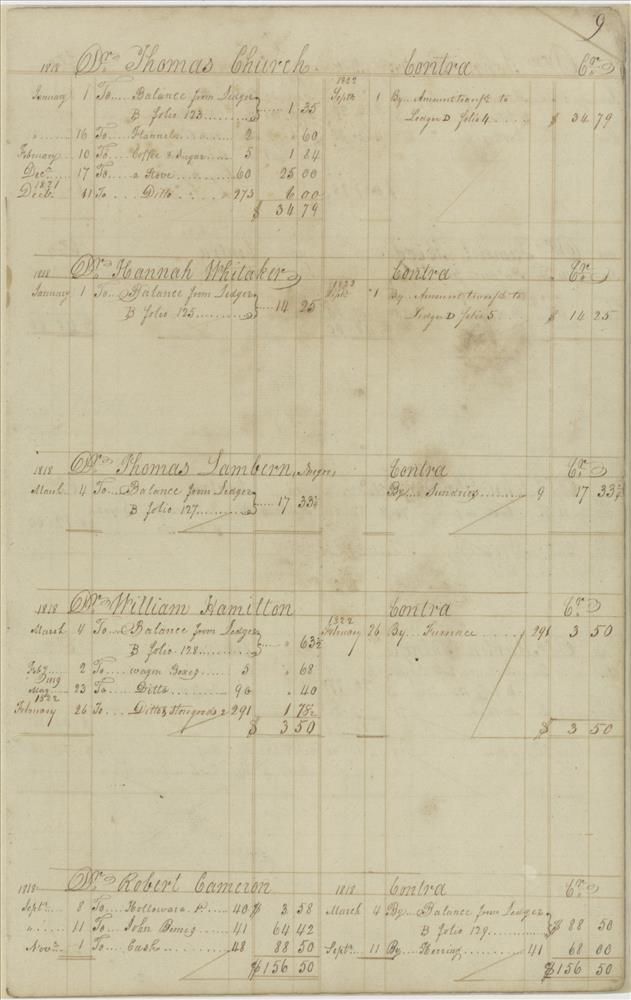 9
1818 Dr. Thomas Church Contra Cr.
January 1 To Balance from Ledger
B folio 123 1 35
" 16 To Flannels 2 " 60
February 10 To Coffee & Sugar 5 1 84
Decr. 17 To a Stove 60 25 00
1821
Decr. 11 To Ditto 273 6 00
$ 34 79
1822
Septr. 1 By Amount transfd. to
Ledger D folio 4 $ 34 79
1818 Dr. Hannah Whitaker Contra Cr.
January 1 To Balance from Ledger
B folio 125 14 25
1822
Septr. 1 By Amount transfd. to
Ledger D folio 5 $ 14 25
1818 Dr. Thomas Lambern, Negro, Contra Cr.
March 4 To Balance from Ledger
B folio 127 17 33½
By Sundries 9 17 33½
1818 Dr. William Hamilton Contra Cr.
March 4 To Balance from Ledger
B folio 128 " 63½
Feby. 2 To wagon Boxes 5 " 68
1819
May 23 To Ditto 96 " 40
1822
February 26 To Ditto & Stovegoods 291 1 78½
$ 3 50
1822
February 26 By Furnace 291 3 50
$ 3 50
1818 Dr. Robert Cameron 1818 Contra Cr.
Septr. 8 To Holloware 40 $ 3 58
" 11 To John 41 64 42
Novr. 1 To Cash 48 88 50
$ 156 50
March 4 By Balance from Ledger
B folio 129 $ 88 50
Septr. 11 By Herring 41 68 00
$ 156 50